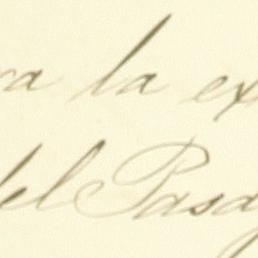 ra la ex
del Pasa